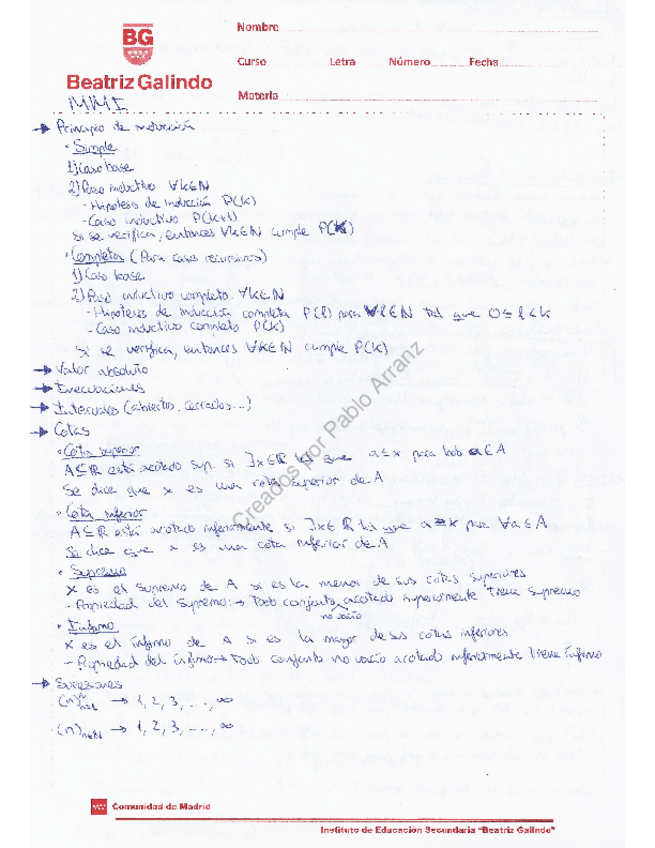 BG
Beatriz Galindo
Nombre
Curso Letra Número Fecha
Materia
MMI
→ Principio de inducción
· Simple
1) Caso base
2) Paso inductivo ∀k∈N
- Hipótesis de Inducción P(k)
- Caso inductivo P(k+1)
Si se verifica, entonces ∀k∈N cumple P(k)
· Completa (Para casos recursivos)
1) Caso base
2) Paso inductivo completo ∀k∈N
- Hipótesis de inducción completa P(l) para ∀l∈N tal que 0≤l<k
- Caso inductivo completo P(k)
Si se verifica, entonces ∀k∈N cumple P(k)
→ Valor absoluto
→ Inecuaciones
→ Intervalos (abiertos, cerrados...)
→ Cotas
· Cota superior
A⊆R está acotado sup. si ∃x∈R tal que a≤x para todo a∈A
Se dice que x es una cota superior de A
· Cota inferior
A⊆R está acotado inferiormente si ∃x∈R tal que a≥x para ∀a∈A
Se dice que x es una cota inferior de A
· Supremo
x es el supremo de A si es la menor de sus cotas superiores
- Propiedad del supremo: → Todo conjunto no vacío acotado superiormente tiene supremo
· Ínfimo
x es el ínfimo de A si es la mayor de sus cotas inferiores
- Propiedad del ínfimo → Todo conjunto no vacío acotado inferiormente tiene ínfimo
→ Sucesiones
(n)∞n=1 → 1, 2, 3, ..., ∞
(n)n∈N → 1, 2, 3, ..., ∞
Creados por Pablo Arranz
Comunidad de Madrid
Instituto de Educación Secundaria "Beatriz Galindo"